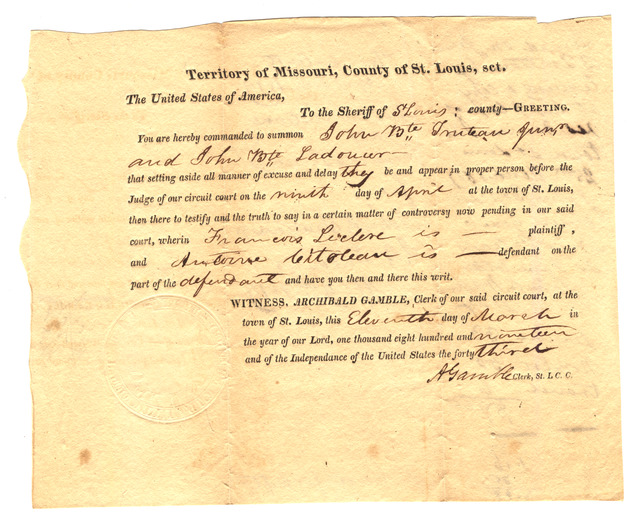 Territory of Missouri, County of St. Louis, sct.
The United States of America,
To the Sheriff of St Louis; county—GREETING.
You are hereby commanded to summon John Bte Truteau Junr
and John Bte Ladoucer
that setting aside all manner of excuse and delay they be and appear in proper person before the
Judge of our circuit court on the ninth day of April at the town of St. Louis,
then there to testify and the truth to say in a certain matter of controversy now pending in our said
court, wherein Francois Leclere is — plaintiff,
and Antoine is — defendant on the
part of the defendant and have you then and there this writ.
WITNESS, ARCHIBALD GAMBLE, Clerk of our said circuit court, at the
town of St. Louis, this Eleventh day of March in
the year of our Lord, one thousand eight hundred and nineteen
and of the Independance of the United States the forty third
A Gamble Clerk, St. L C. C.